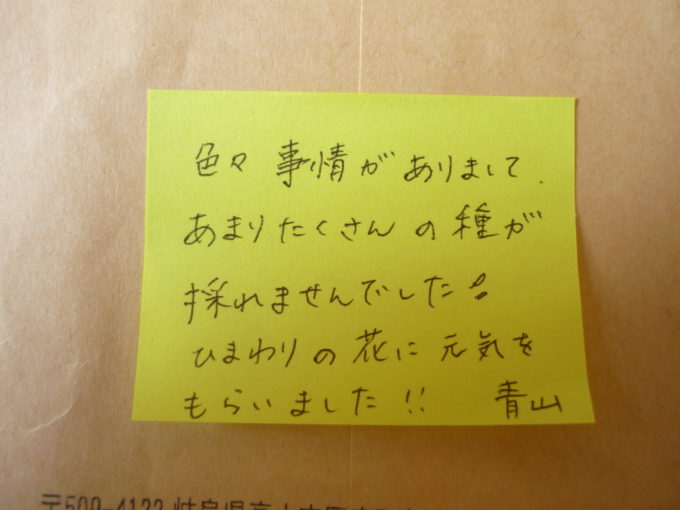 色々事情がありまして、
あまりたくさんの種が
採れませんでした!
ひまわりの花に元気を
もらいました!!　青山